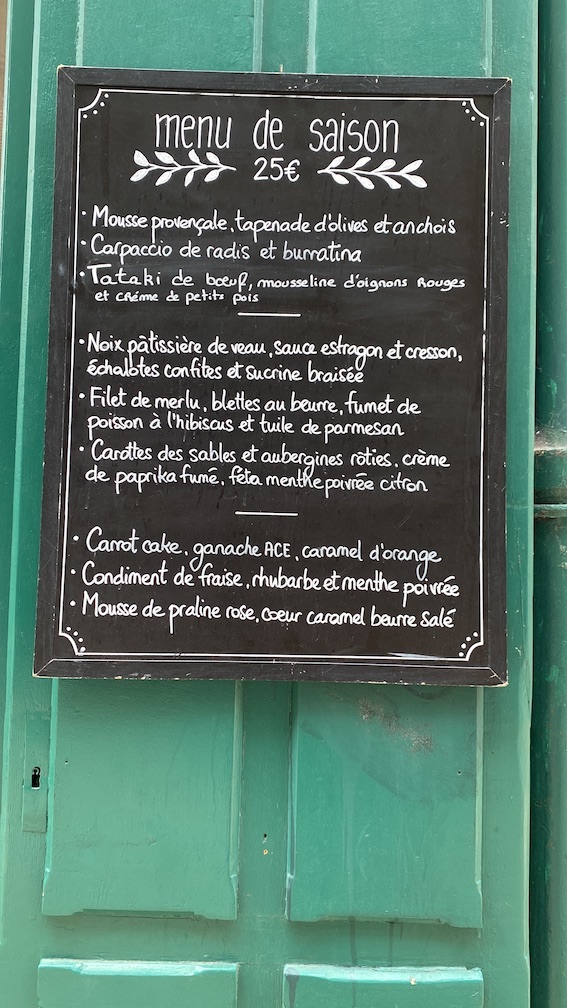 menu de saison
25€
· Mousse provençale, tapenade d'olives et anchois
· Carpaccio de radis et burratina
· Tataki de bœuf, mousseline d'oignons Rouges
et crème de petits pois
· Noix pâtissière de veau, sauce estragon et cresson,
échalotes confites et sucrine braisée
· Filet de merlu, blettes au beurre, fumet de
poisson à l'hibiscus et tuile de parmesan
· Carottes des sables et aubergines rôties, crème
de paprika fumé, féta menthe poivrée citron
· Carrot cake, ganache ACE, caramel d'orange
· Condiment de fraise, rhubarbe et menthe poivrée
· Mousse de praline rose, coeur caramel beurre salé